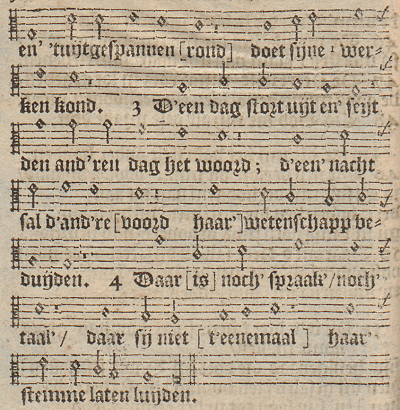 en' 'tuijtgespannen [rond] doet sijne wer-
ken kond. 3 D'een dag stort uijt en' seijt
den and'ren dag het woord; d'een' nacht
sal d'and're [voord haar'] wetenschapp be-
duijden. 4 Daar [is] noch' spraak'/noch'
taal'/ daar sij niet [t'eenemaal] haar'
stemme laten luijden.